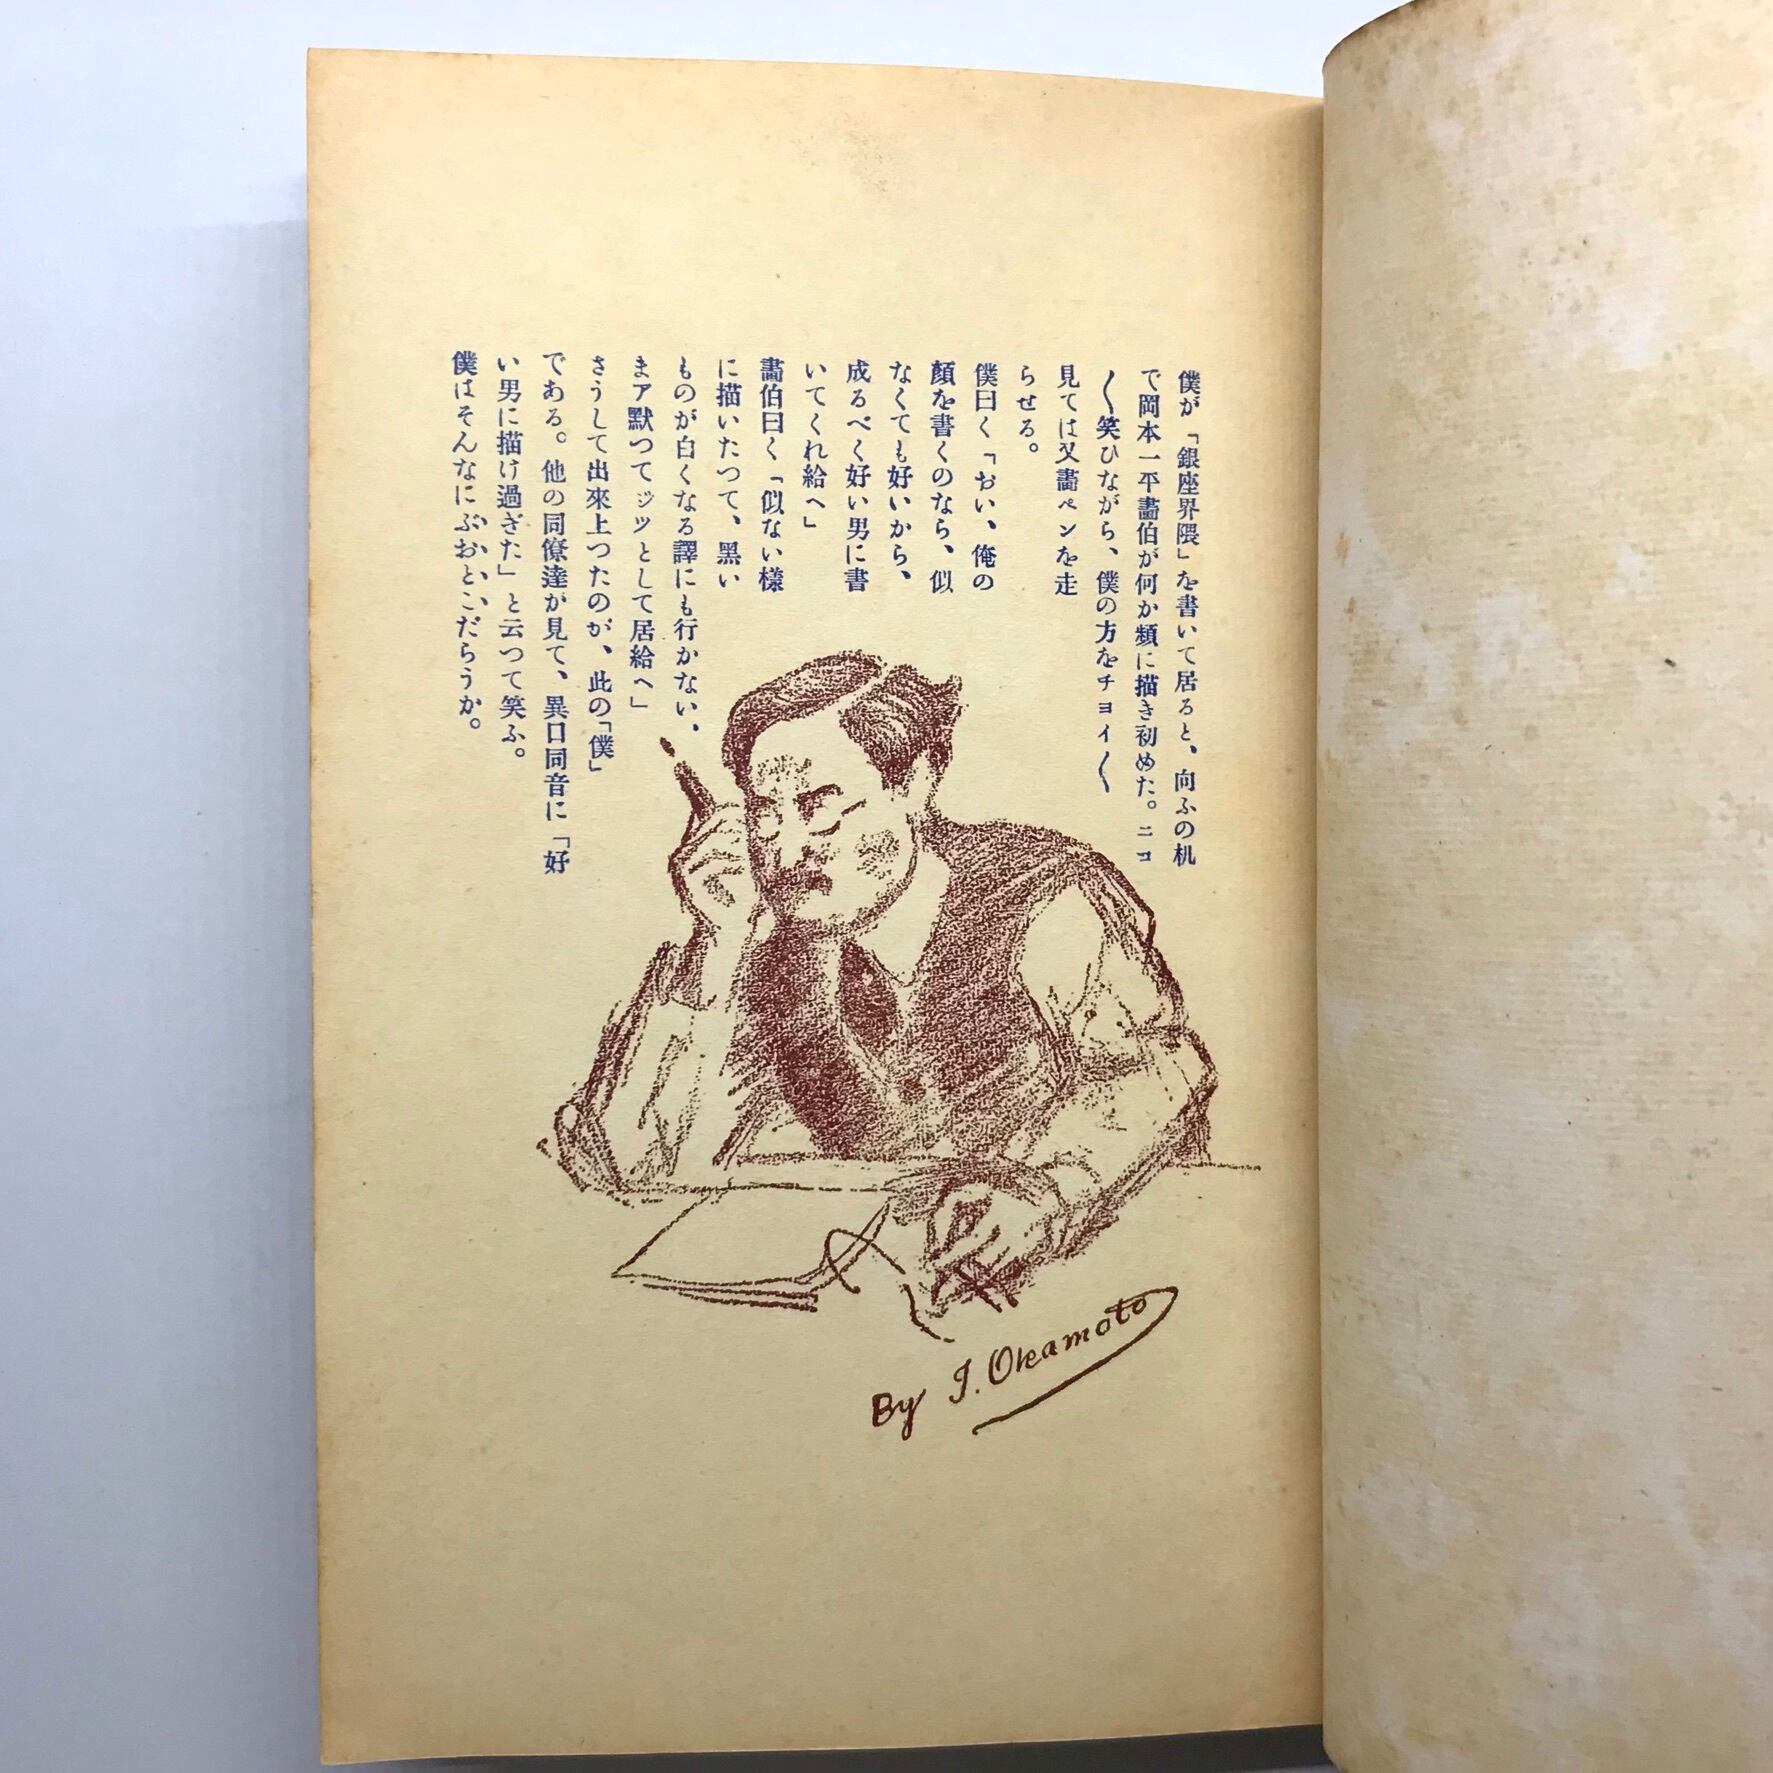 僕が「銀座界隈」を書いて居ると、向ふの机
で岡本一平畵伯が何か頻に描き初めた。ニコ
〱笑ひながら、僕の方をチョイ〱
見ては又畵ペンを走
らせる。
僕曰く「おい、俺の
顏を書くのなら、似
なくても好いから、
成るべく好い男に書
いてくれ給へ」
畵伯曰く「似ない樣
に描いたつて、黑い
ものが白くなる譯にも行かない、
まア默つてジツとして居給へ」
さうして出來上つたのが、此の「僕」
である。他の同僚達が見て、異口同音に「好
い男に描け過ぎた」と云つて笑ふ。
僕はそんなにぶおとこだらうか。
By I. Okamoto